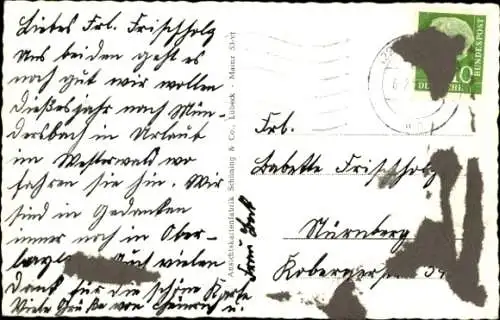 Liebes Frl. Frischholz
Uns beiden geht es
noch gut wir wollen
dießes Jahr nach Mün-
dersbach in Urlaub
im Westerwald wo
fahren sie hin. Wir
sind in Gedanken
immer noch in Ober-
Auch vielen
Dank für die schöne Karte
Viele Grüße von Heinrich u.
Frau
Ansichtskartenfabrik Schöning & Co., Lübeck - Mainz
DEUTSCHE BUNDESPOST
10
Frl.
Babette Frischholz
Nürnberg